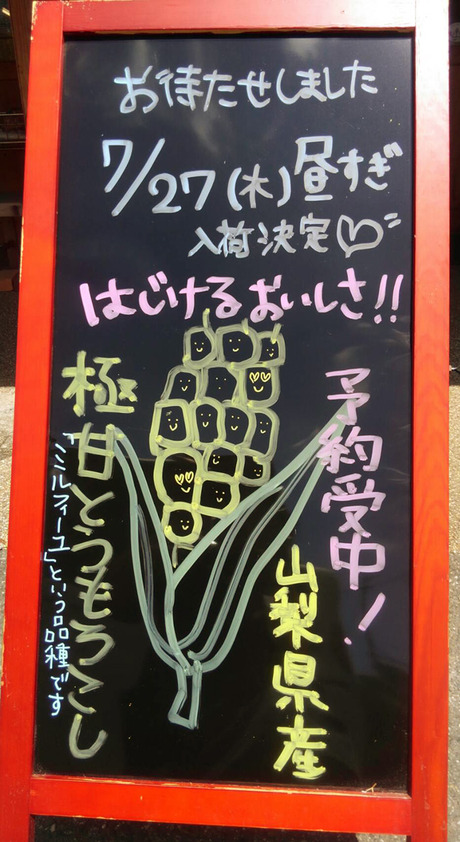 お待たせしました
7/27(木)昼すぎ
入荷決定♡
はじけるおいしさ!!
予約受中!
極甘とうもろこし
「ミルフィーユ」という品種です
山梨県産